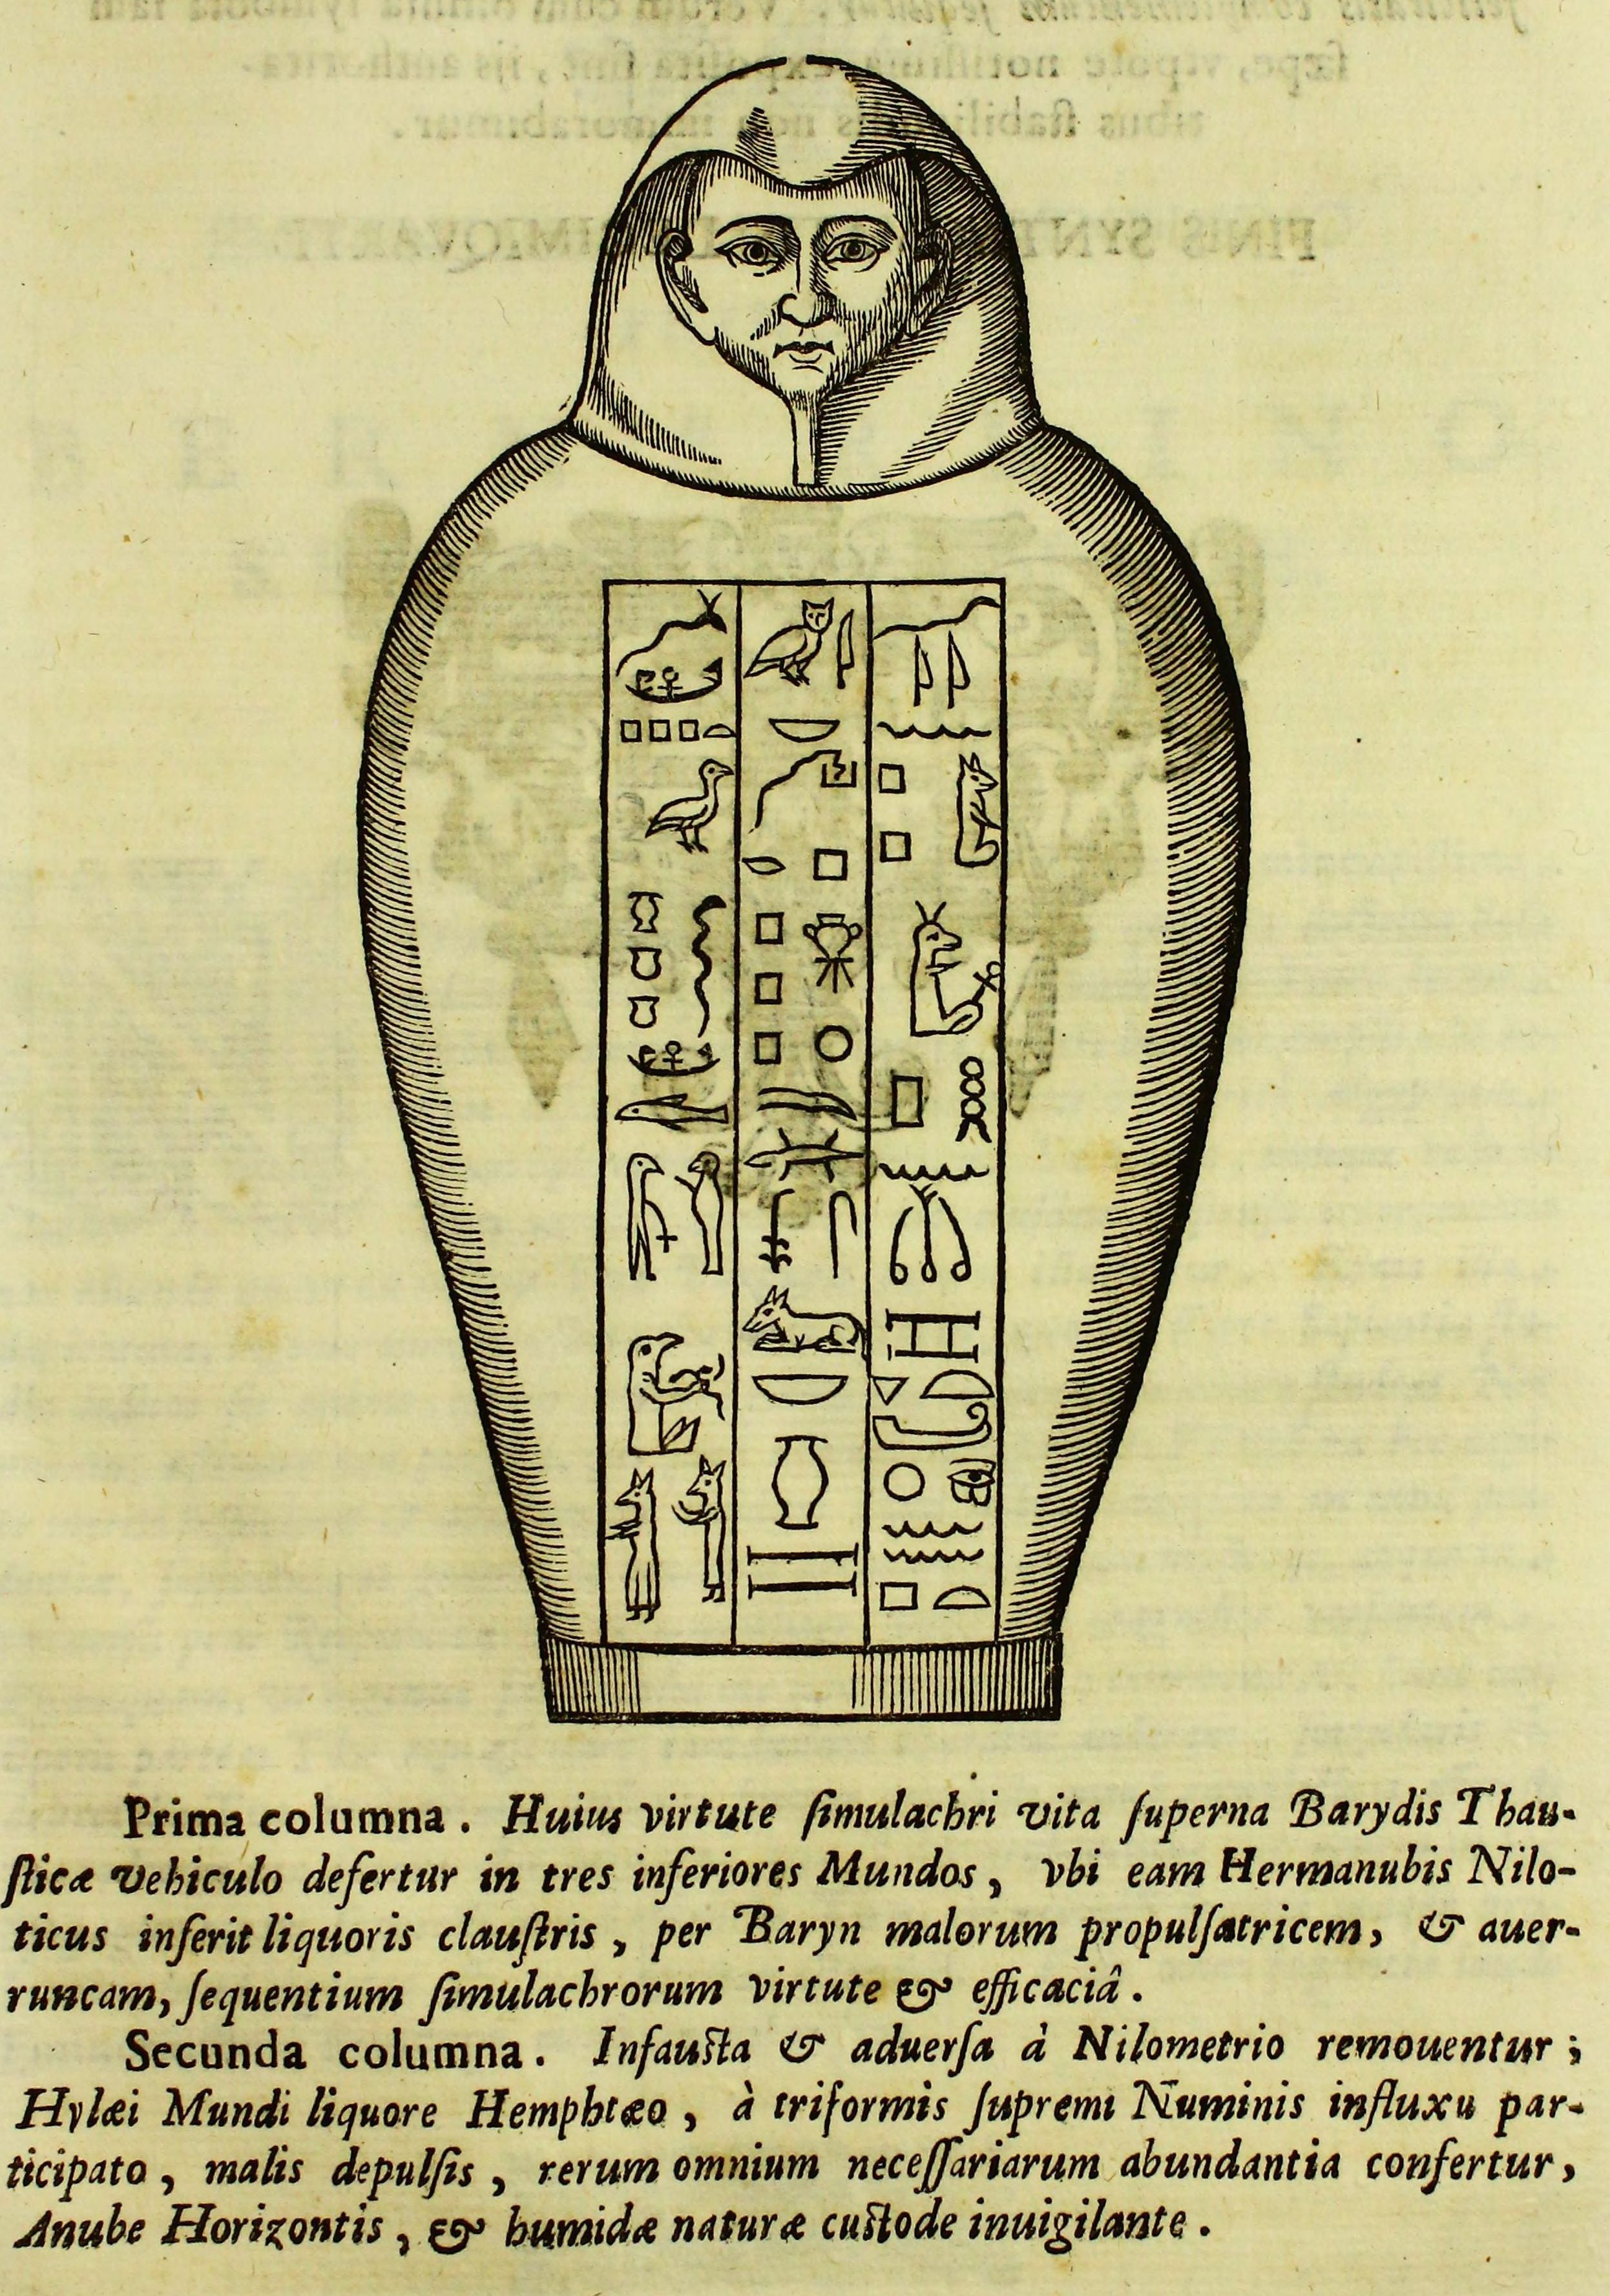 Prima columna. Huius virtute ſimulachri vita ſuperna Barydis Thau-
ſticæ vehiculo defertur in tres inferiores Mundos, vbi eam Hermanubis Nilo-
ticus inferit liquoris clauſtris, per Baryn malorum propulſatricem, & auer-
runcam, ſequentium ſimulachrorum virtute & efficaciâ.
Secunda columna. Infauſta & aduerſa à Nilometrio remouentur;
Hylæi Mundi liquore Hemphtæo, à triformis ſupremi Numinis influxu par-
ticipato, malis depulſis, rerum omnium neceſſariarum abundantia confertur,
Anube Horizontis, & humidæ naturæ cuſtode inuigilante.